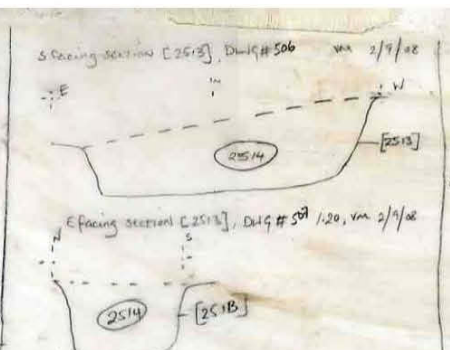 S facing section [2513], DWG # 506 vm 2/9/08
E W
2514
[2513]
E facing section [2513], DWG # 507 1:20, vm 2/9/08
N S
2514
[2513]